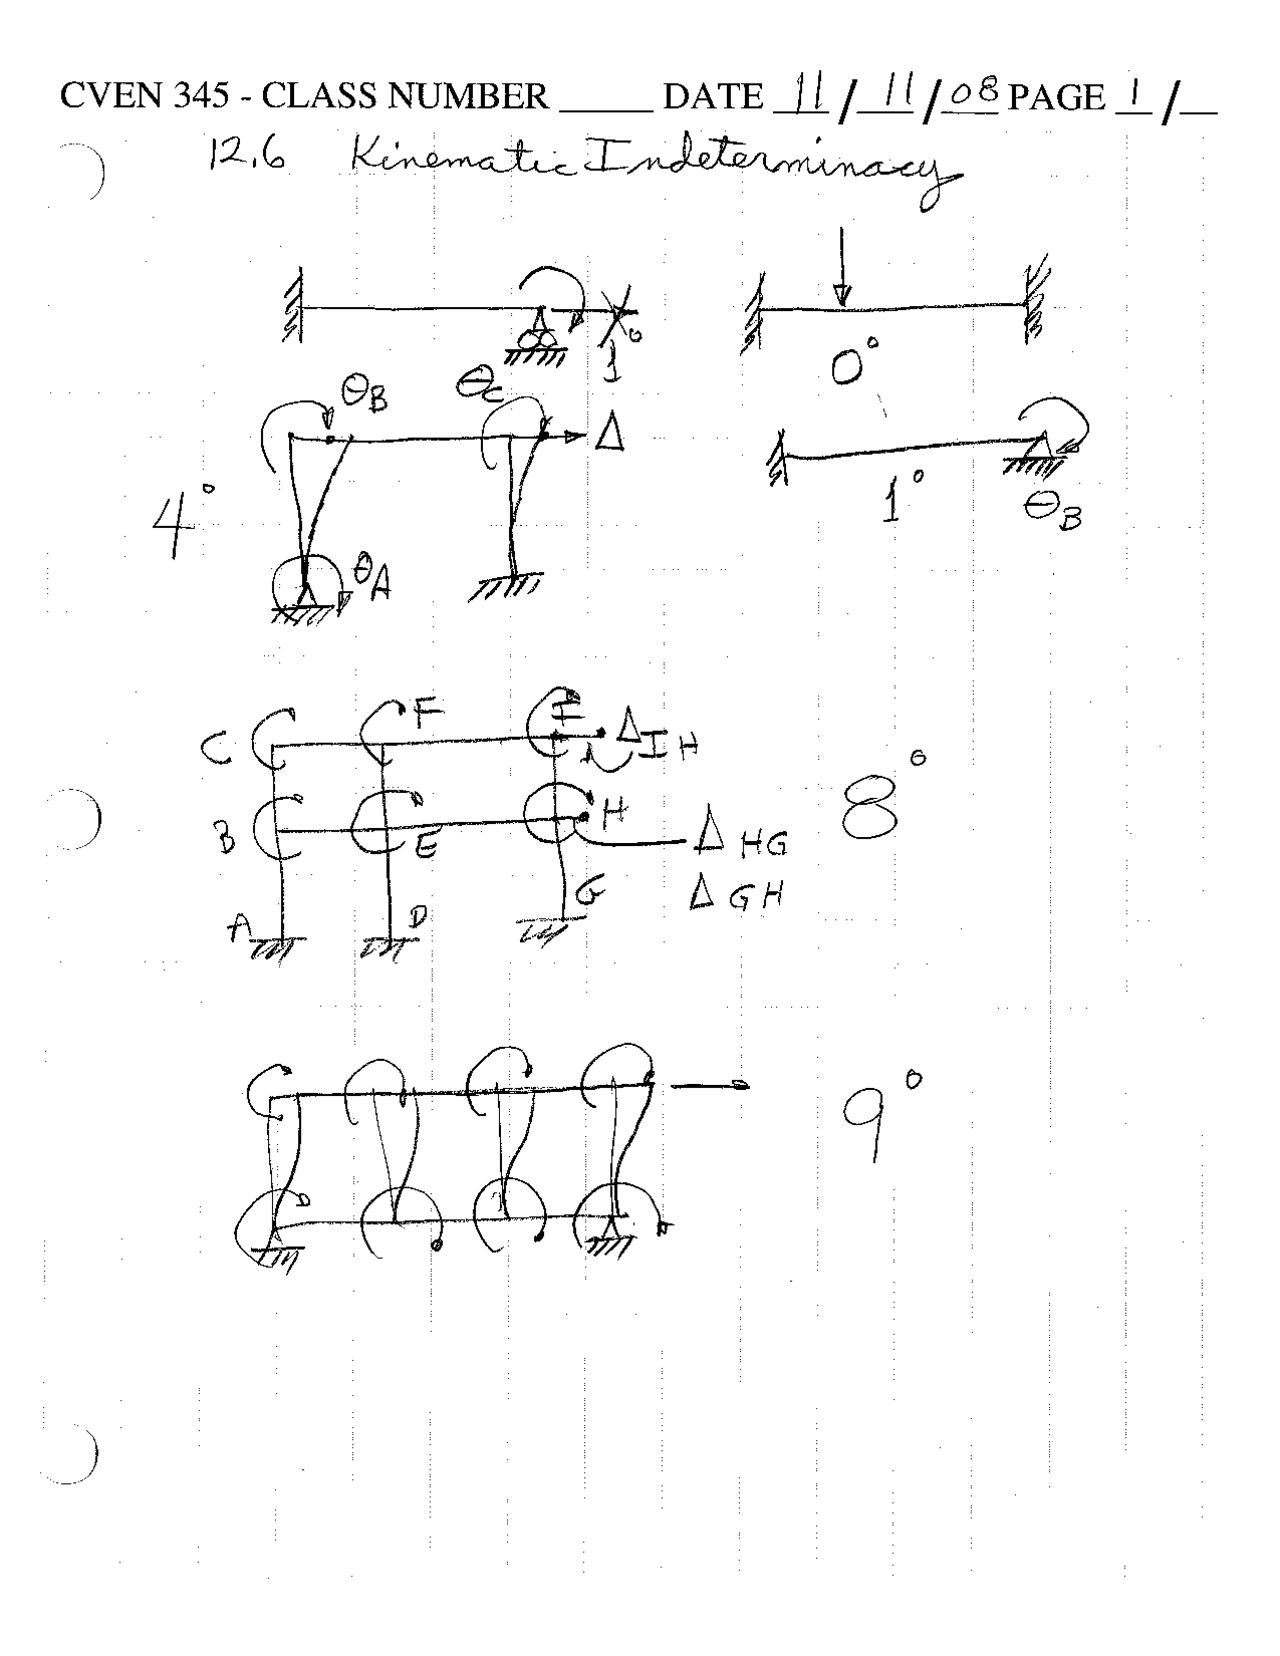 CVEN 345 - CLASS NUMBER _____ DATE 11 / 11 / 08 PAGE 1 / __
12.6 Kinematic Indeterminacy
1°
0°
θB θC Δ
4°
1° θB
θA
C F I ΔIH
8°
B E H ΔHG
ΔGH
A D G
9°